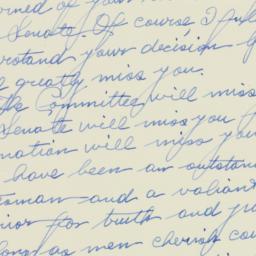 of your
Senate. Of course, I ful
rstand your decision
greatly miss you.
The Committee will miss
Senate will miss you
nation will miss you
have been an outstand
tesman and a valiant
rior for truth and ju
long as men cherish cou